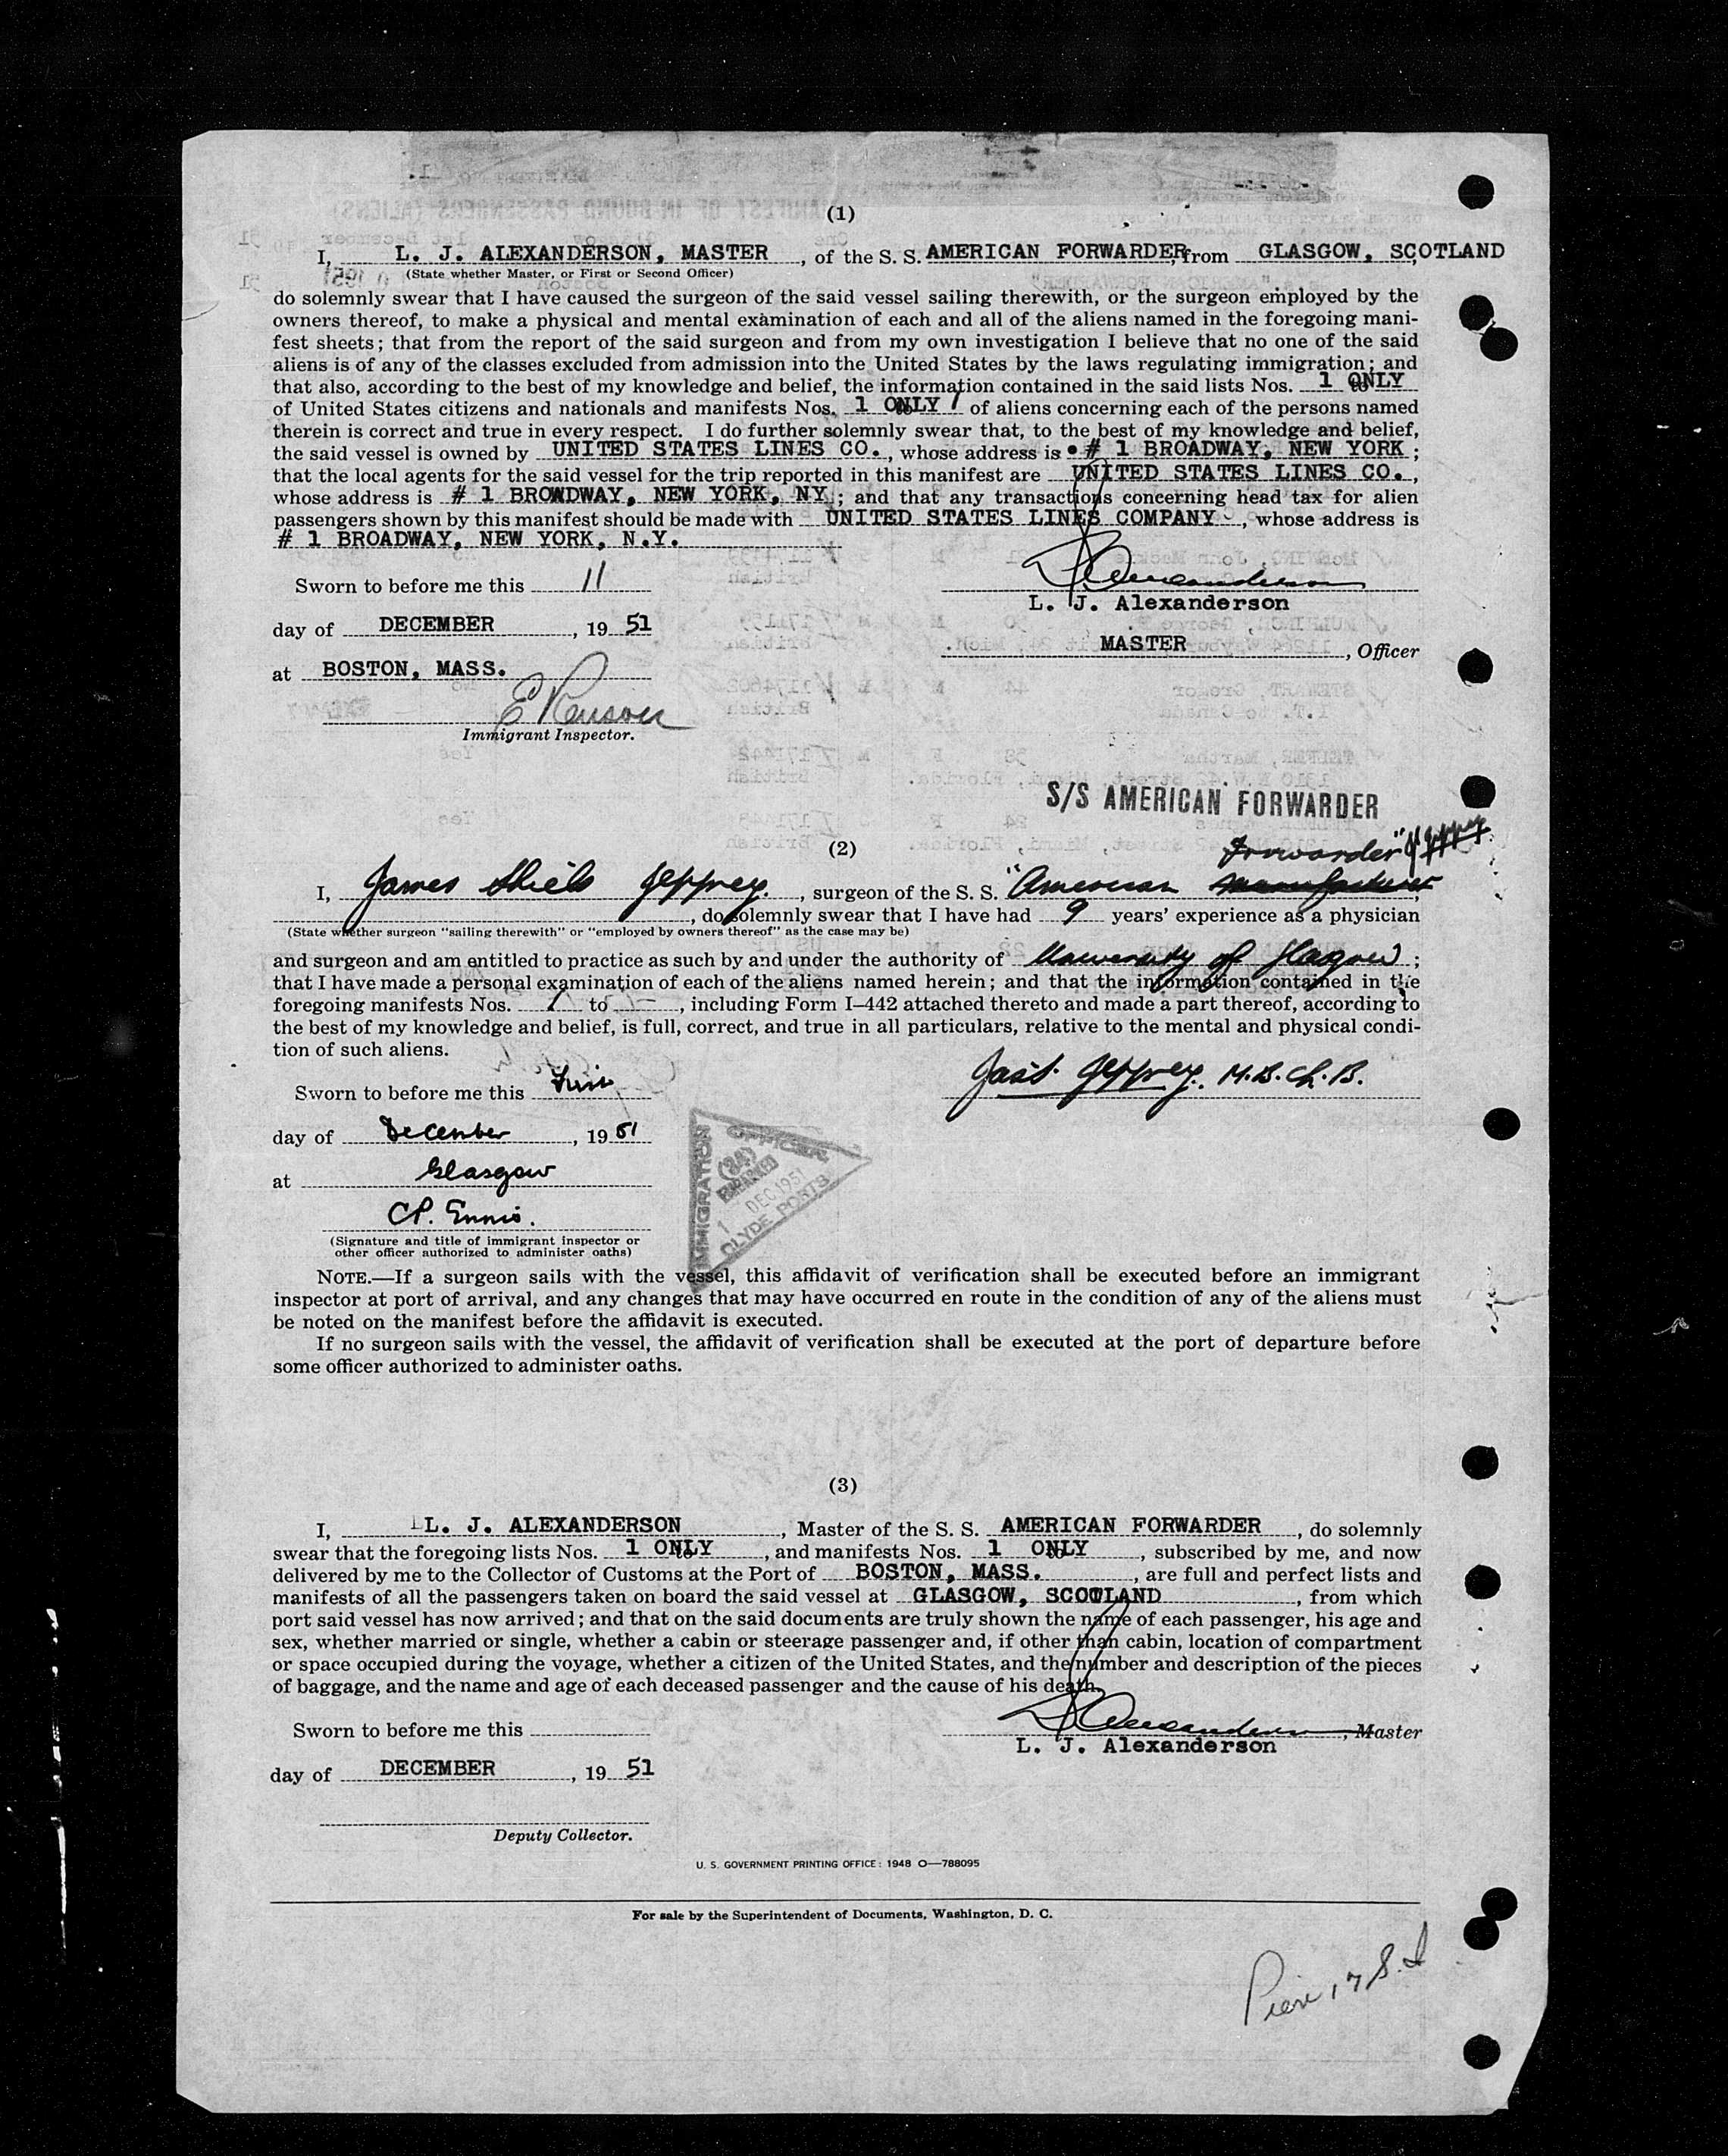 (1)
I, L. J. ALEXANDERSON, MASTER, of the S. S. AMERICAN FORWARDER, from GLASGOW, SCOTLAND
(State whether Master, or First or Second Officer)
do solemnly swear that I have caused the surgeon of the said vessel sailing therewith, or the surgeon employed by the
owners thereof, to make a physical and mental examination of each and all of the aliens named in the foregoing mani-
fest sheets; that from the report of the said surgeon and from my own investigation I believe that no one of the said
aliens is of any of the classes excluded from admission into the United States by the laws regulating immigration; and
that also, according to the best of my knowledge and belief, the information contained in the said lists Nos. 1 ONLY
of United States citizens and nationals and manifests Nos. 1 ONLY of aliens concerning each of the persons named
therein is correct and true in every respect. I do further solemnly swear that, to the best of my knowledge and belief,
the said vessel is owned by UNITED STATES LINES CO., whose address is # 1 BROADWAY, NEW YORK;
that the local agents for the said vessel for the trip reported in this manifest are UNITED STATES LINES CO.,
whose address is # 1 BROWDWAY, NEW YORK, NY; and that any transactions concerning head tax for alien
passengers shown by this manifest should be made with UNITED STATES LINES COMPANY, whose address is
# 1 BROADWAY, NEW YORK, N.Y.
Sworn to before me this 11
L. J. Alexanderson
day of DECEMBER, 19 51
MASTER, Officer
at BOSTON, MASS.
Immigrant Inspector.
S/S AMERICAN FORWARDER
(2)
Forwarder"
I, James Shiels Jeffrey., surgeon of the S. S. "American Manufacturer,
, do solemnly swear that I have had 9 years' experience as a physician
(State whether surgeon "sailing therewith" or "employed by owners thereof" as the case may be)
and surgeon and am entitled to practice as such by and under the authority of University of Glasgow;
that I have made a personal examination of each of the aliens named herein; and that the information contained in the
foregoing manifests Nos. 1 to , including Form I–442 attached thereto and made a part thereof, according to
the best of my knowledge and belief, is full, correct, and true in all particulars, relative to the mental and physical condi-
tion of such aliens.
Jas S. Jeffrey. M.B. Ch. B.
Sworn to before me this
day of December, 19 51
at Glasgow
C.P. Ennis.
(Signature and title of immigrant inspector or
other officer authorized to administer oaths)
IMMIGRATION OFFICER
(34)
EMBARKED
1 DEC 1951
CLYDE PORTS
NOTE.—If a surgeon sails with the vessel, this affidavit of verification shall be executed before an immigrant
inspector at port of arrival, and any changes that may have occurred en route in the condition of any of the aliens must
be noted on the manifest before the affidavit is executed.
If no surgeon sails with the vessel, the affidavit of verification shall be executed at the port of departure before
some officer authorized to administer oaths.
(3)
I, L. J. ALEXANDERSON, Master of the S. S. AMERICAN FORWARDER, do solemnly
swear that the foregoing lists Nos. 1 ONLY, and manifests Nos. 1 ONLY, subscribed by me, and now
delivered by me to the Collector of Customs at the Port of BOSTON, MASS., are full and perfect lists and
manifests of all the passengers taken on board the said vessel at GLASGOW, SCOTLAND, from which
port said vessel has now arrived; and that on the said documents are truly shown the name of each passenger, his age and
sex, whether married or single, whether a cabin or steerage passenger and, if other than cabin, location of compartment
or space occupied during the voyage, whether a citizen of the United States, and the number and description of the pieces
of baggage, and the name and age of each deceased passenger and the cause of his death.
Sworn to before me this
, Master
L. J. Alexanderson
day of DECEMBER, 19 51
Deputy Collector.
U. S. GOVERNMENT PRINTING OFFICE: 1948 O—788095
For sale by the Superintendent of Documents, Washington, D. C.
Pier 17 S.